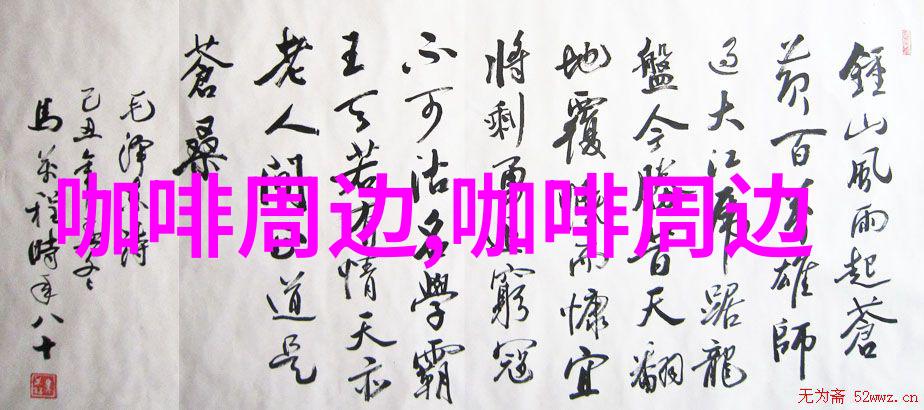 鍾山風雨起蒼
黄百萬雄師
過大江虎踞龍
盤今勝昔天翻
地覆慨而慷宜
將剩勇追窮寇
不可沽名學霸
王天若有情天亦
老人間正道是
蒼桑
毛澤东詩
己丑年冬
馬萬程時年八十
咖啡周边,咖啡周边
无为斋 52wwz.cn